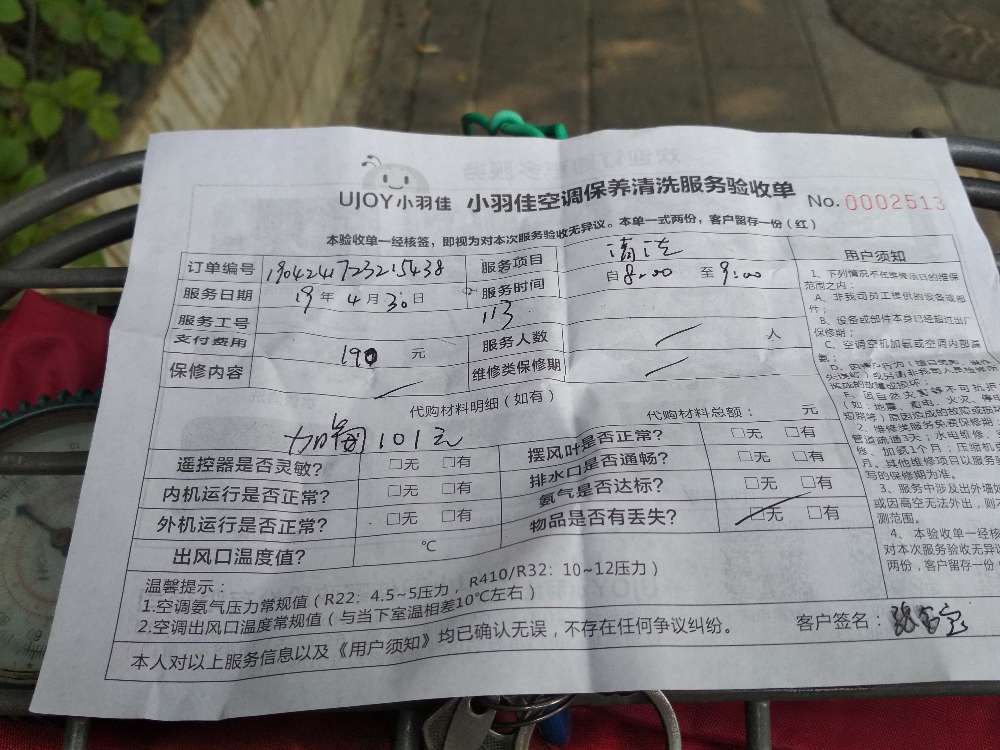 UJOY小羽佳 小羽佳空调保养清洗服务验收单 No. 0002513
本验收单一经核签，即视为对本次服务验收无异议。本单一式两份，客户留存一份（红）
订单编号 1904241723215438 服务项目 清洁
服务日期 19年4月30日 服务时间 自8:00 至9:00
服务工号 113
支付费用 190 元 服务人数 人
保修内容 维修类保修期
代购材料明细（如有） 代购材料总额： 元
加氟101元
遥控器是否灵敏？ □无 □有 摆风叶是否正常？ □无 □有
内机运行是否正常？ □无 □有 排水口是否通畅？ □无 □有
外机运行是否正常？ □无 □有 氨气是否达标？ □无 □有
出风口温度值？ ℃ 物品是否有丢失？ □无 □有
温馨提示：
1.空调氨气压力常规值（R22：4.5~5压力，R410/R32：10~12压力）
2.空调出风口温度常规值（与当下室温相差10℃左右）
本人对以上服务信息以及《用户须知》均已确认无误，不存在任何争议纠纷。 客户签名：
用户须知
1、下列情况不在维修项目的维保
范围之内：
A、非我司员工提供的设备或部
件；
B、设备或部件本身已经超过出厂
保修期；
C、空调空机加氨或空调内部漏
氨；
（如：地震、雷电、火灾、停电
2、维修类服务免费保修期：
管道疏通3天；水电维修、
修、加氨1个月；压缩机
月。其他维修项目以服务
写的保修期为准。
3、服务中涉及出外墙
或因高空无法外出，则
测范围。
4、本验收单一经核
对本次服务验收无异
两份，客户留存一份